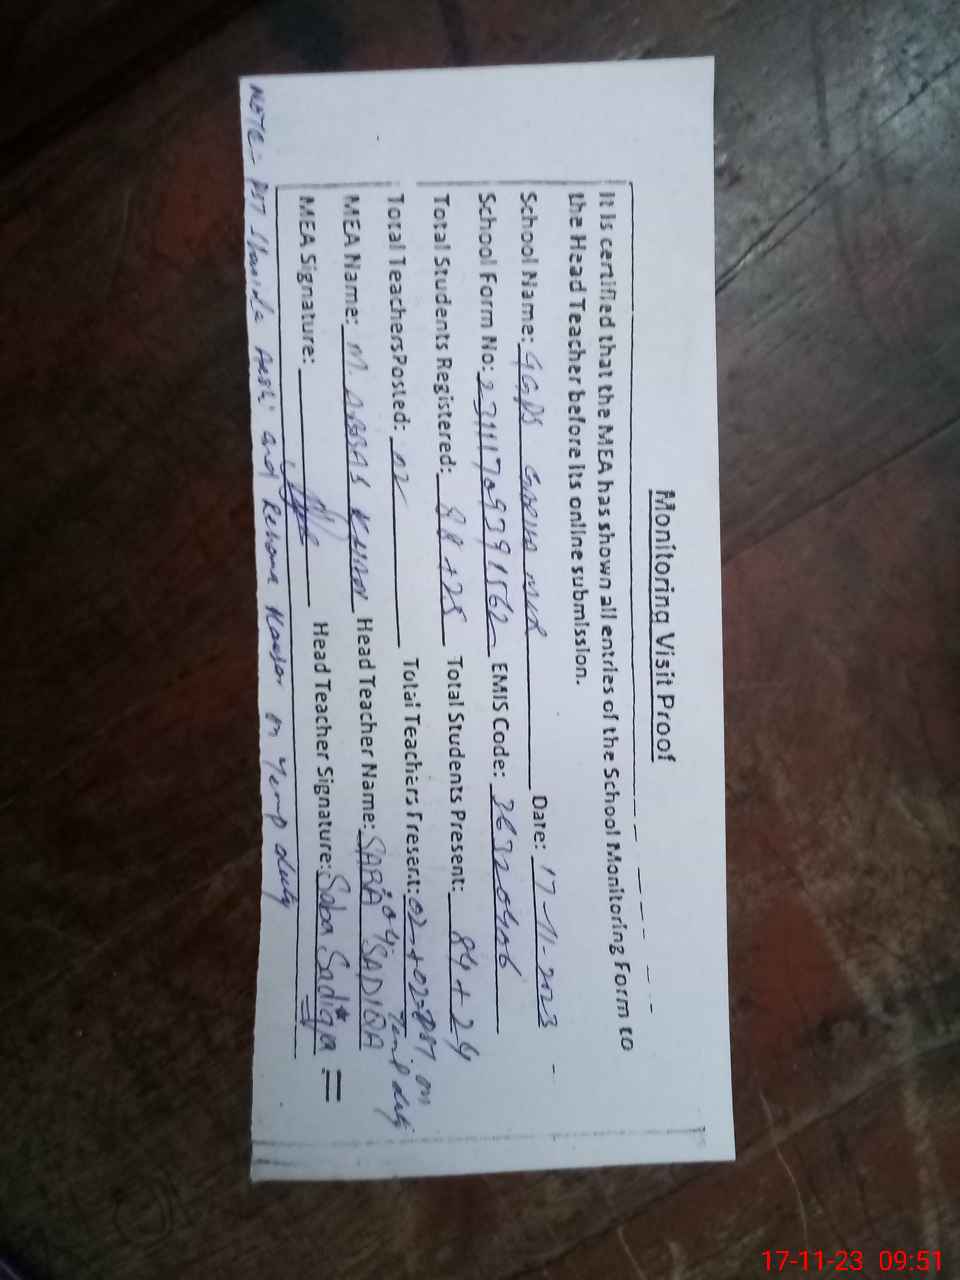 Monitoring Visit Proof
It is certified that the MEA has shown all entries of the School Monitoring Form to
the Head Teacher before its online submission.
School Name: GGPS Date: 17-11-2023
School Form No: 23111709391562 EMIS Code:
Total Students Registered: 88+25 Total Students Present: 84+24
Total TeachersPosted: 02 Total Teachers Present: 02+02 PST on
04 Temp duty
MEA Name: M ABBAS KHAN Head Teacher Name: SABA SADIQA
MEA Signature: Head Teacher Signature: Saba Sadiqa
NOTE:- PST and Rehana Kausar on Temp duty
17-11-23 09:51